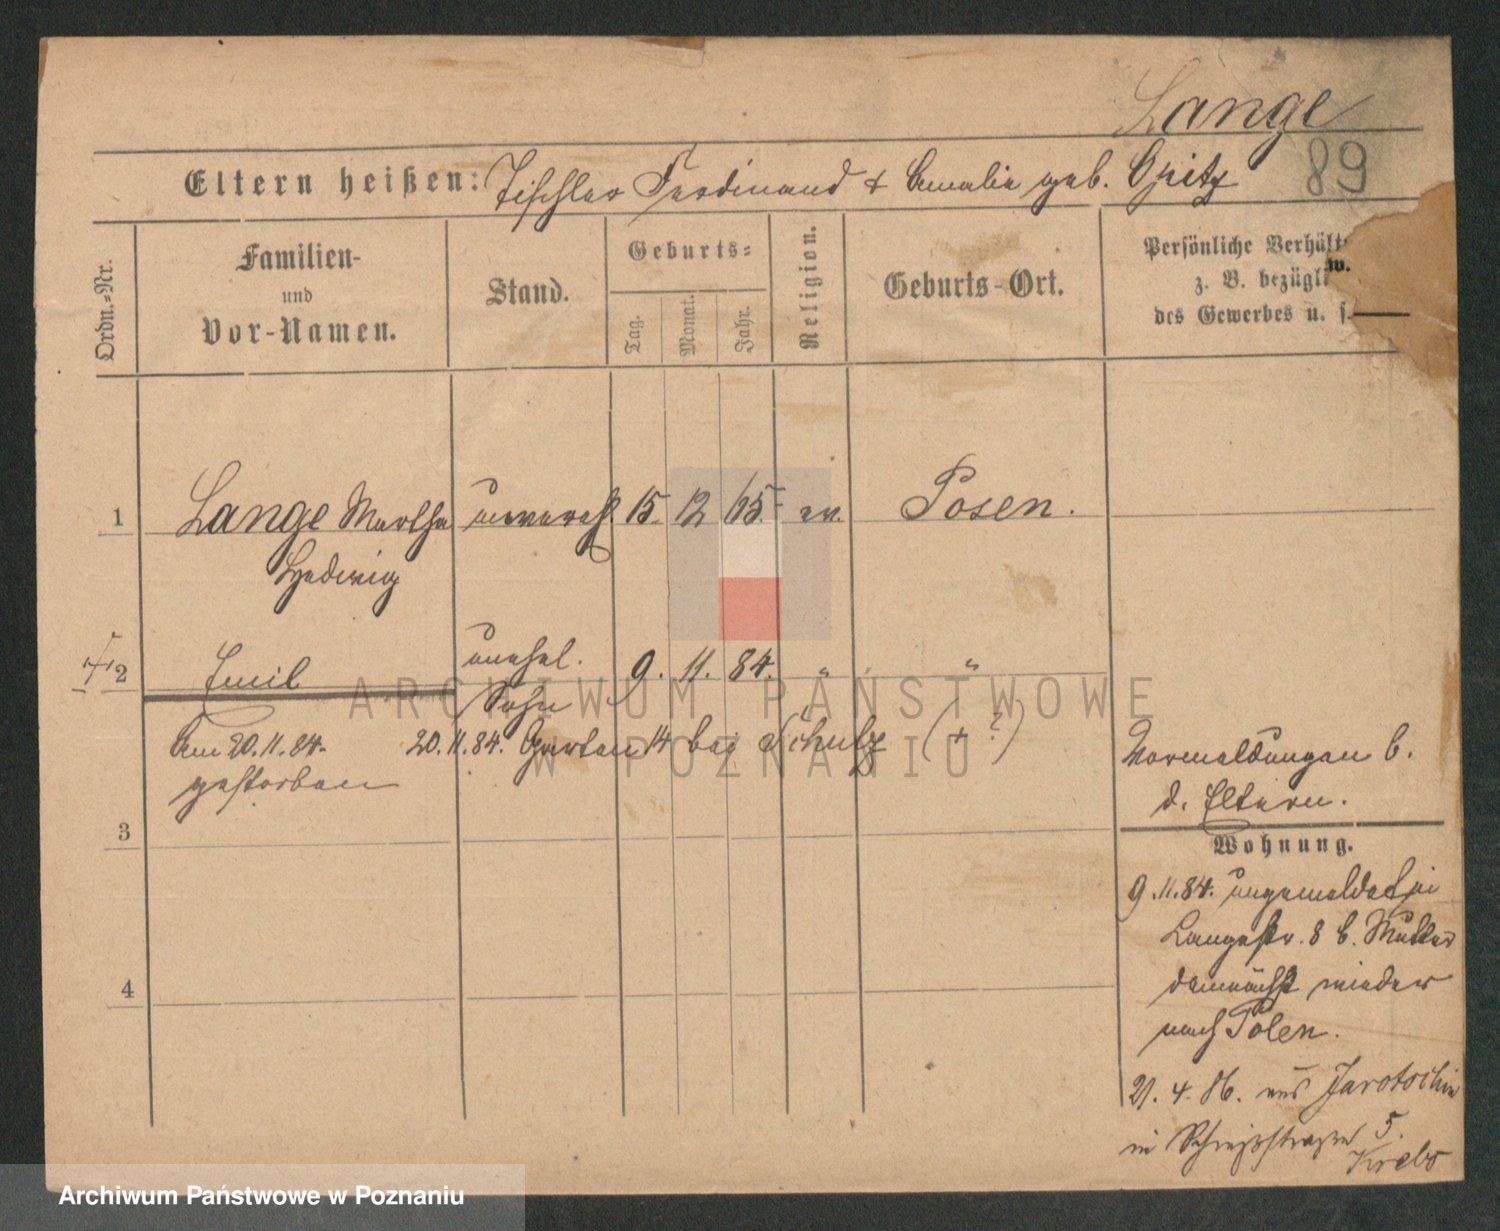 Lange
89
Eltern heißen: Tischler Ferdinand + Amalie geb. Opitz
Ordn.-Nr.
Familien-
und
Vor-Namen.
Stand.
Geburts-
Tag.
Monat.
Jahr.
Religion.
Geburts-Ort.
Persönliche Verhält
z. B. bezügli
w.
des Gewerbes u. s.
1 Lange Martha unvereh. 15. 12 65. ev. Posen.
Hedwig
2 Emil unehel. 9. 11. 84. " "
Sohn
Am 20.11.84. 20.11.84. Garten 14 bei Schulz (+ ?)
gestorben
Vormeldungen b.
d. Eltern.
3
Wohnung.
9.11.84. angemeldet in
Langestr. 8 b. Mutter
demnächst wieder
nach Polen.
4
21. 4. 86. aus Jarotschin
in Schießstraße 5.
Krebs
ARCHIWUM PAŃSTWOWE
W POZNANIU
Archiwum Państwowe w Poznaniu